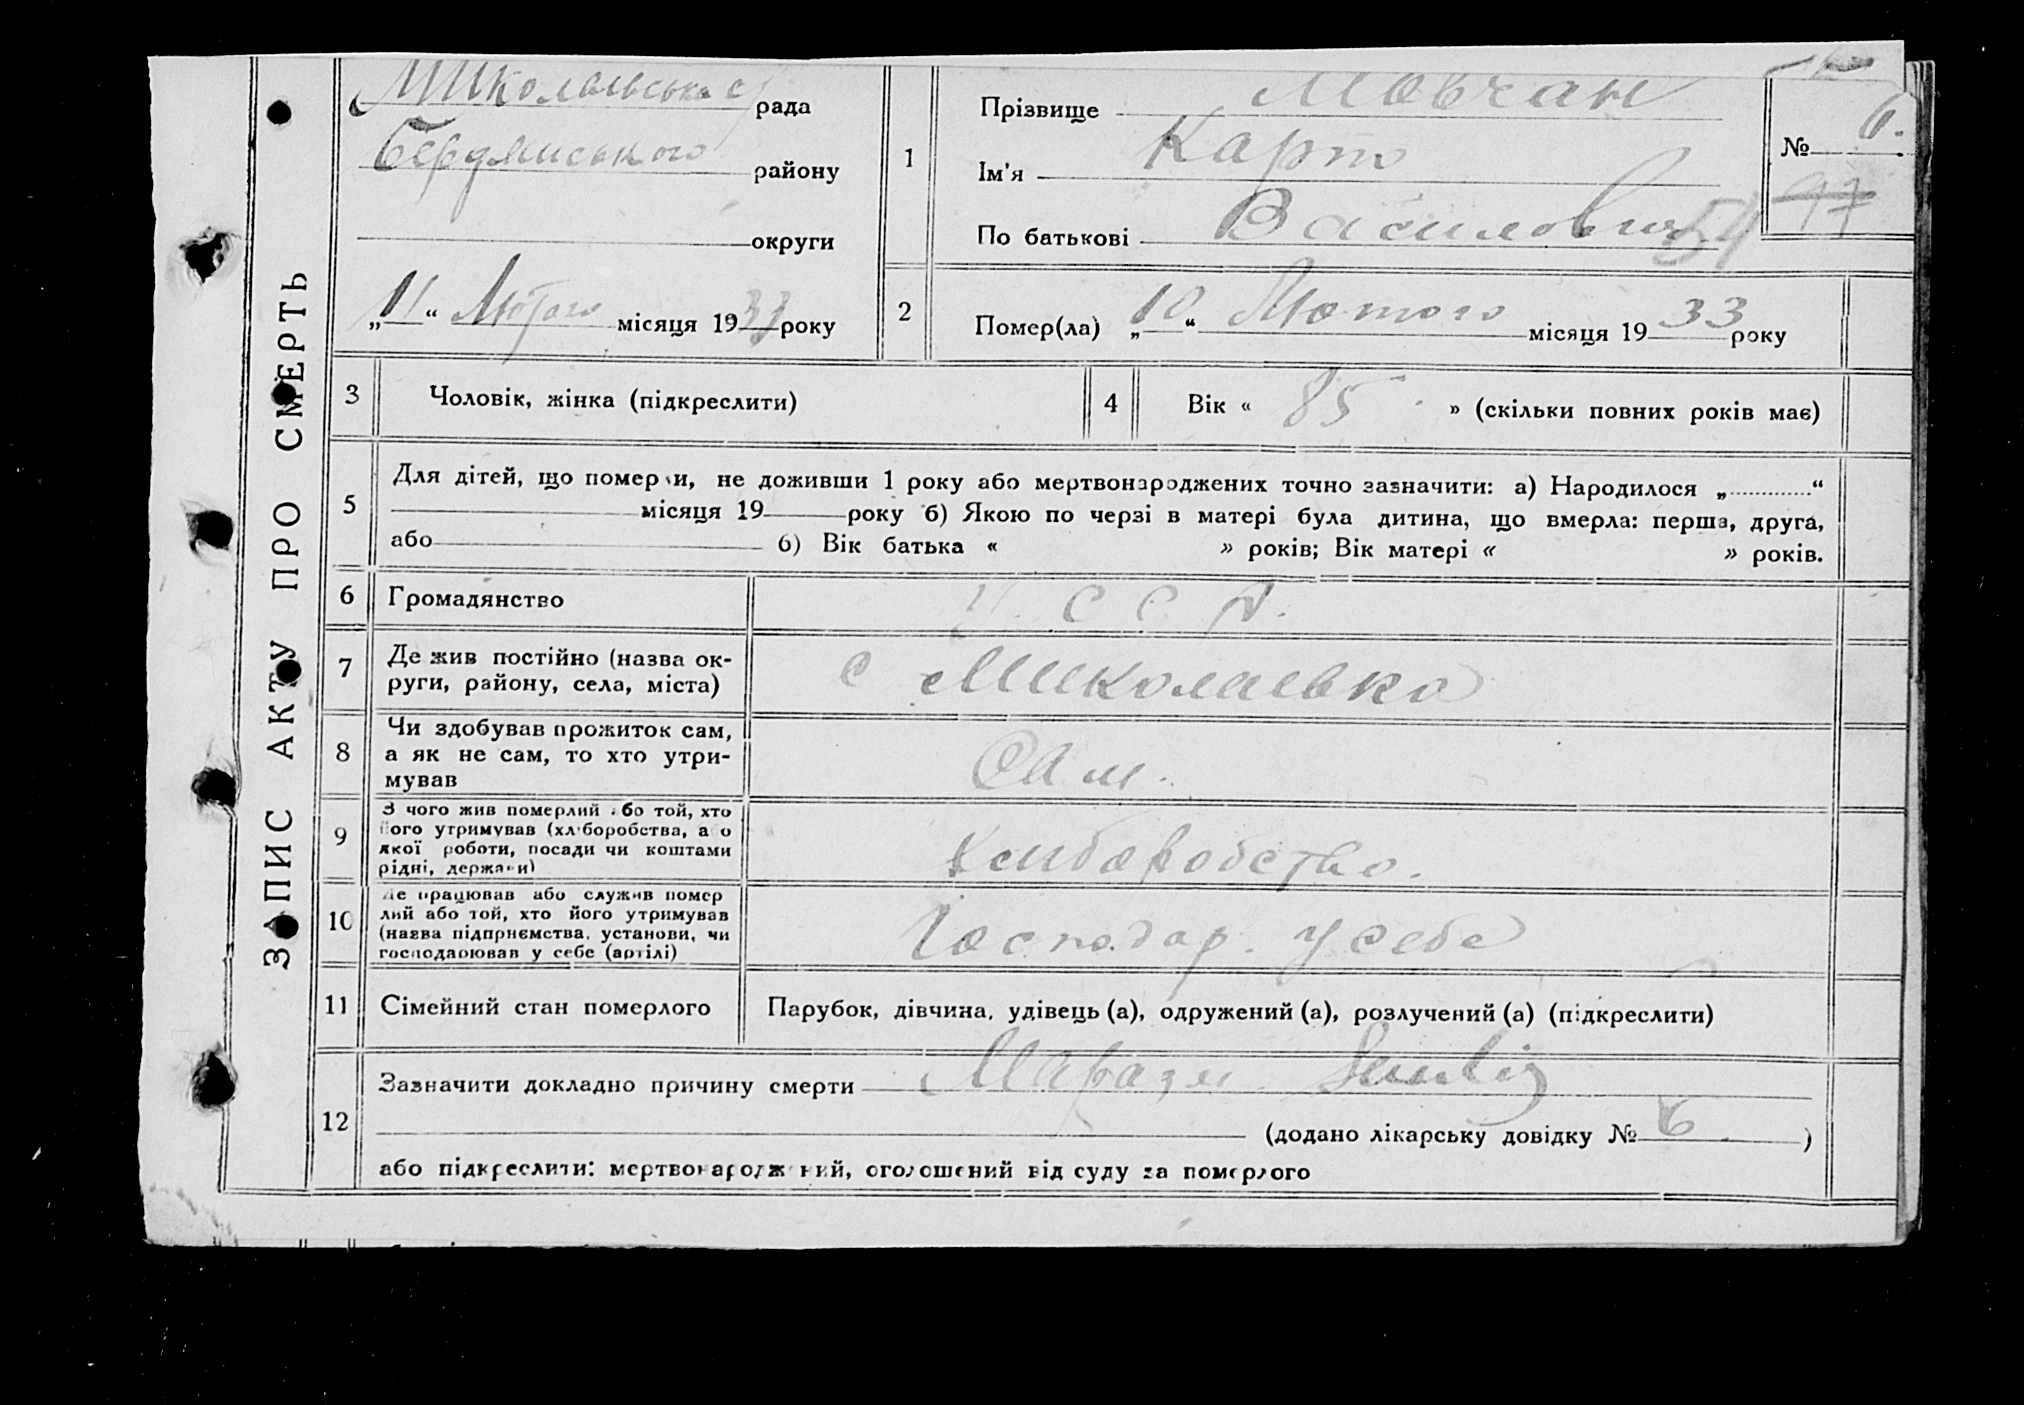 ЗАПИС АКТУ ПРО СМЕРТЬ
Миколаївська с/рада
Бердянського району
округи
„11“ Лютого місяця 1933 року
1
Прізвище Мовчан
Ім'я Карпо
По батькові Василович
54
№ 6.
17
2
Помер(ла) „10“ Лютого місяця 1933 року
3
Чоловік, жінка (підкреслити)
4
Вік « 85 » (скільки повних років має)
5
Для дітей, що померли, не доживши 1 року або мертвонароджених точно зазначити: а) Народилося „ “
місяця 19 року б) Якою по черзі в матері була дитина, що вмерла: перша, друга,
або б) Вік батька « » років; Вік матері « » років.
6
Громадянство
У. С С Р.
7
Де жив постійно (назва ок-
руги, району, села, міста)
с Миколаевка
8
Чи здобував прожиток сам,
а як не сам, то хто утри-
мував
Сам.
9
З чого жив померлий або той, хто
його утримував (хліборобства, або
якої роботи, посади чи коштами
рідні, держави)
Хлиборобство.
10
Де працював або служив помер
лий або той, хто його утримував
(назва підприємства, установи, чи
господарював у себе (артілі)
Господар. у себе
11
Сімейний стан померлого
Парубок, дівчина, удівець (а), одружений (а), розлучений (а) (підкреслити)
12
Зазначити докладно причину смерти
(додано лікарську довідку № 6 )
або підкреслити: мертвонароджений, оголошений від суду за померлого